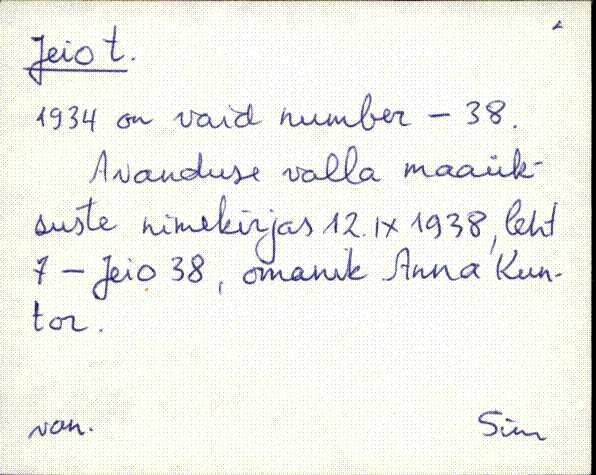 Jeio t.
1934 on vaid number - 38.
Avanduse valla maaük-
suste nimekirjas 12.IX 1938, leht
7 - Jeio 38, omanik Anna Kun-
tor.
van. Sim